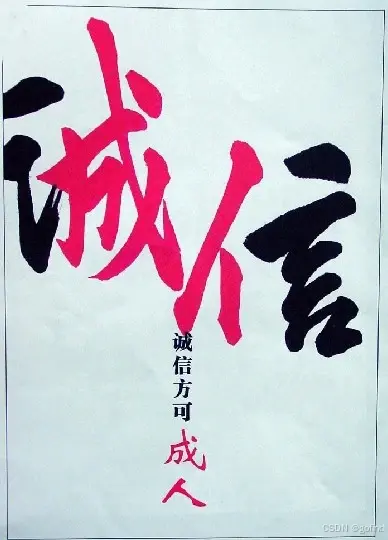 诚信
诚信方可成人
CSDN @gofint